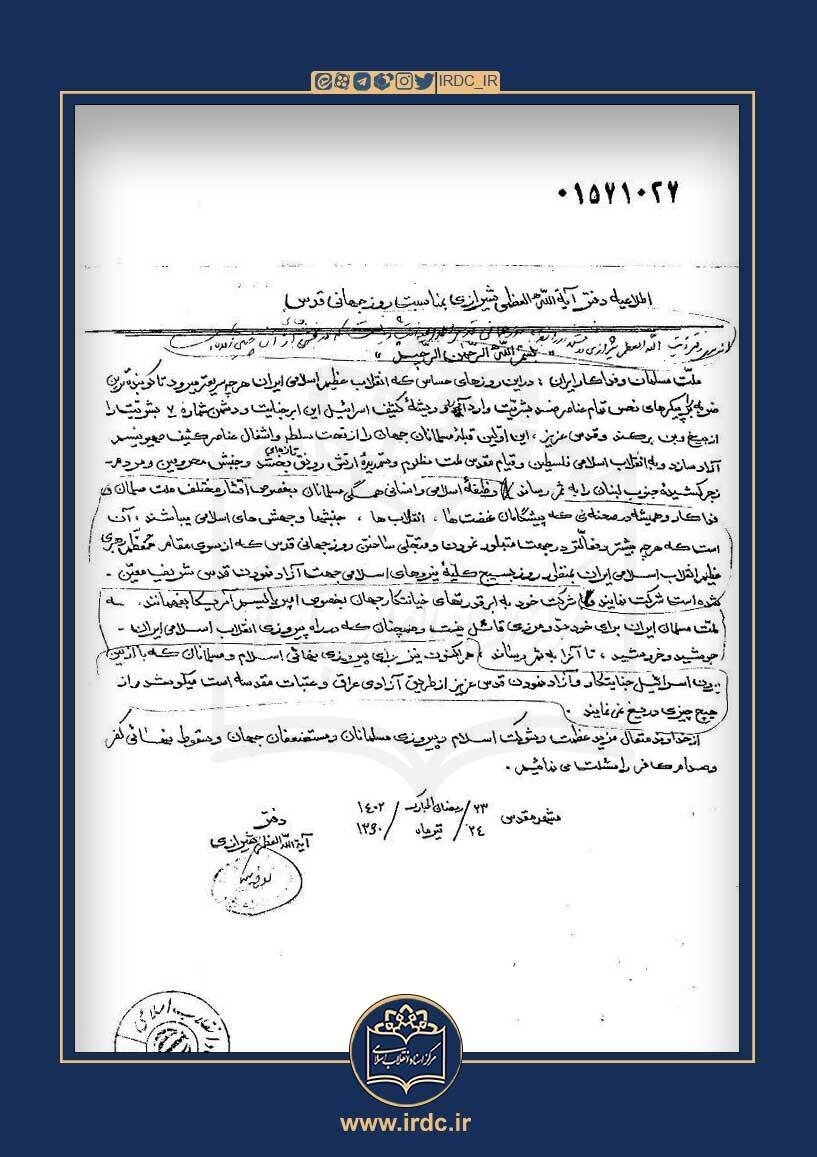 IRDC_IR
۰۱۵۷۱۰۲۷
اطلاعیه دفتر آیة اللّه العظمی شیرازی بمناسبت روز جهانی قدس
بسم اللّه الرّحمن الرّحیم
ملّت مسلمان و فداکار ایران : در این روزهای حساس که انقلاب عظیم اسلامی ایران هر چه سریعتر میرود تا کوبنده‌ترین
ضربه را بر پیکرهای نحس تمام عناصر ضد بشریّت وارد آورد و ریشهٔ کثیف اسرائیل این ابر جنایت و دشمن شماره ۷ بشریّت را
از بیخ و بن برکند و قدس عزیز ، این اولین قبلهٔ مسلمانان جهان را از تحت سلطه و اشغال عناصر کثیف صهیونیسم
آزاد سازد و به انقلاب اسلامی فلسطین و قیام مقدس ملت مظلوم و ستمدیدهٔ ارتش رونق تازه‌ای بخشد و جنبش محرومین و مردم
زجر کشیدهٔ جنوب لبنان را به ثمر رساند وظیفهٔ اسلامی و انسانی همگی مسلمانان بخصوص اقشار مختلف ملت مسلمان و
فداکار و همیشه در صحنه‌ی که پیشگامان نهضت‌ها ، انقلاب‌ها ، جنبشها و جهش‌های اسلامی میباشند ، آن
است که هر چه بیشتر و فعالتر در جهت متبلور نمودن و متجلی ساختن روز جهانی قدس که از سوی مقام معظم رهبری
عظیم انقلاب اسلامی ایران بمنظور روز بسیج کلیهٔ نیروهای اسلامی جهت آزاد نمودن قدس شریف معین
شده است شرکت نمایند و با شرکت خود به ابرقدرتهای خیانتکار جهان بخصوص امپریالیسم آمریکا بفهمانند که
ملت مسلمان ایران برای خود حد و مرزی قائل نیست و همچنان که در راه پیروزی انقلاب اسلامی ایران
جوشید و خروشید ، تا آنرا به ثمر رساند ، هم اکنون نیز برای پیروزی نهائی اسلام و مسلمانان که با از بین
بردن اسرائیل جنایتکار و آزاد نمودن قدس عزیز از طریق آزادی عراق و عتبات مقدسه است میکوشد و از
هیچ چیزی دریغ نمی نمایند .
از خداوند متعال مزید عظمت و شوکت اسلام و پیروزی مسلمانان و مستضعفان جهان و سقوط نهائی کفر
و صدام کافر را مسئلت می نمائیم .
مشهد مقدس ۲۳ / رمضان المبارک / ۱۴۰۲
۲۴ / تیرماه / ۱۳۶۰
دفتر
آیة اللّه العظمی شیرازی
انقلاب اسلامی
مرکز اسناد انقلاب اسلامی
www.irdc.ir